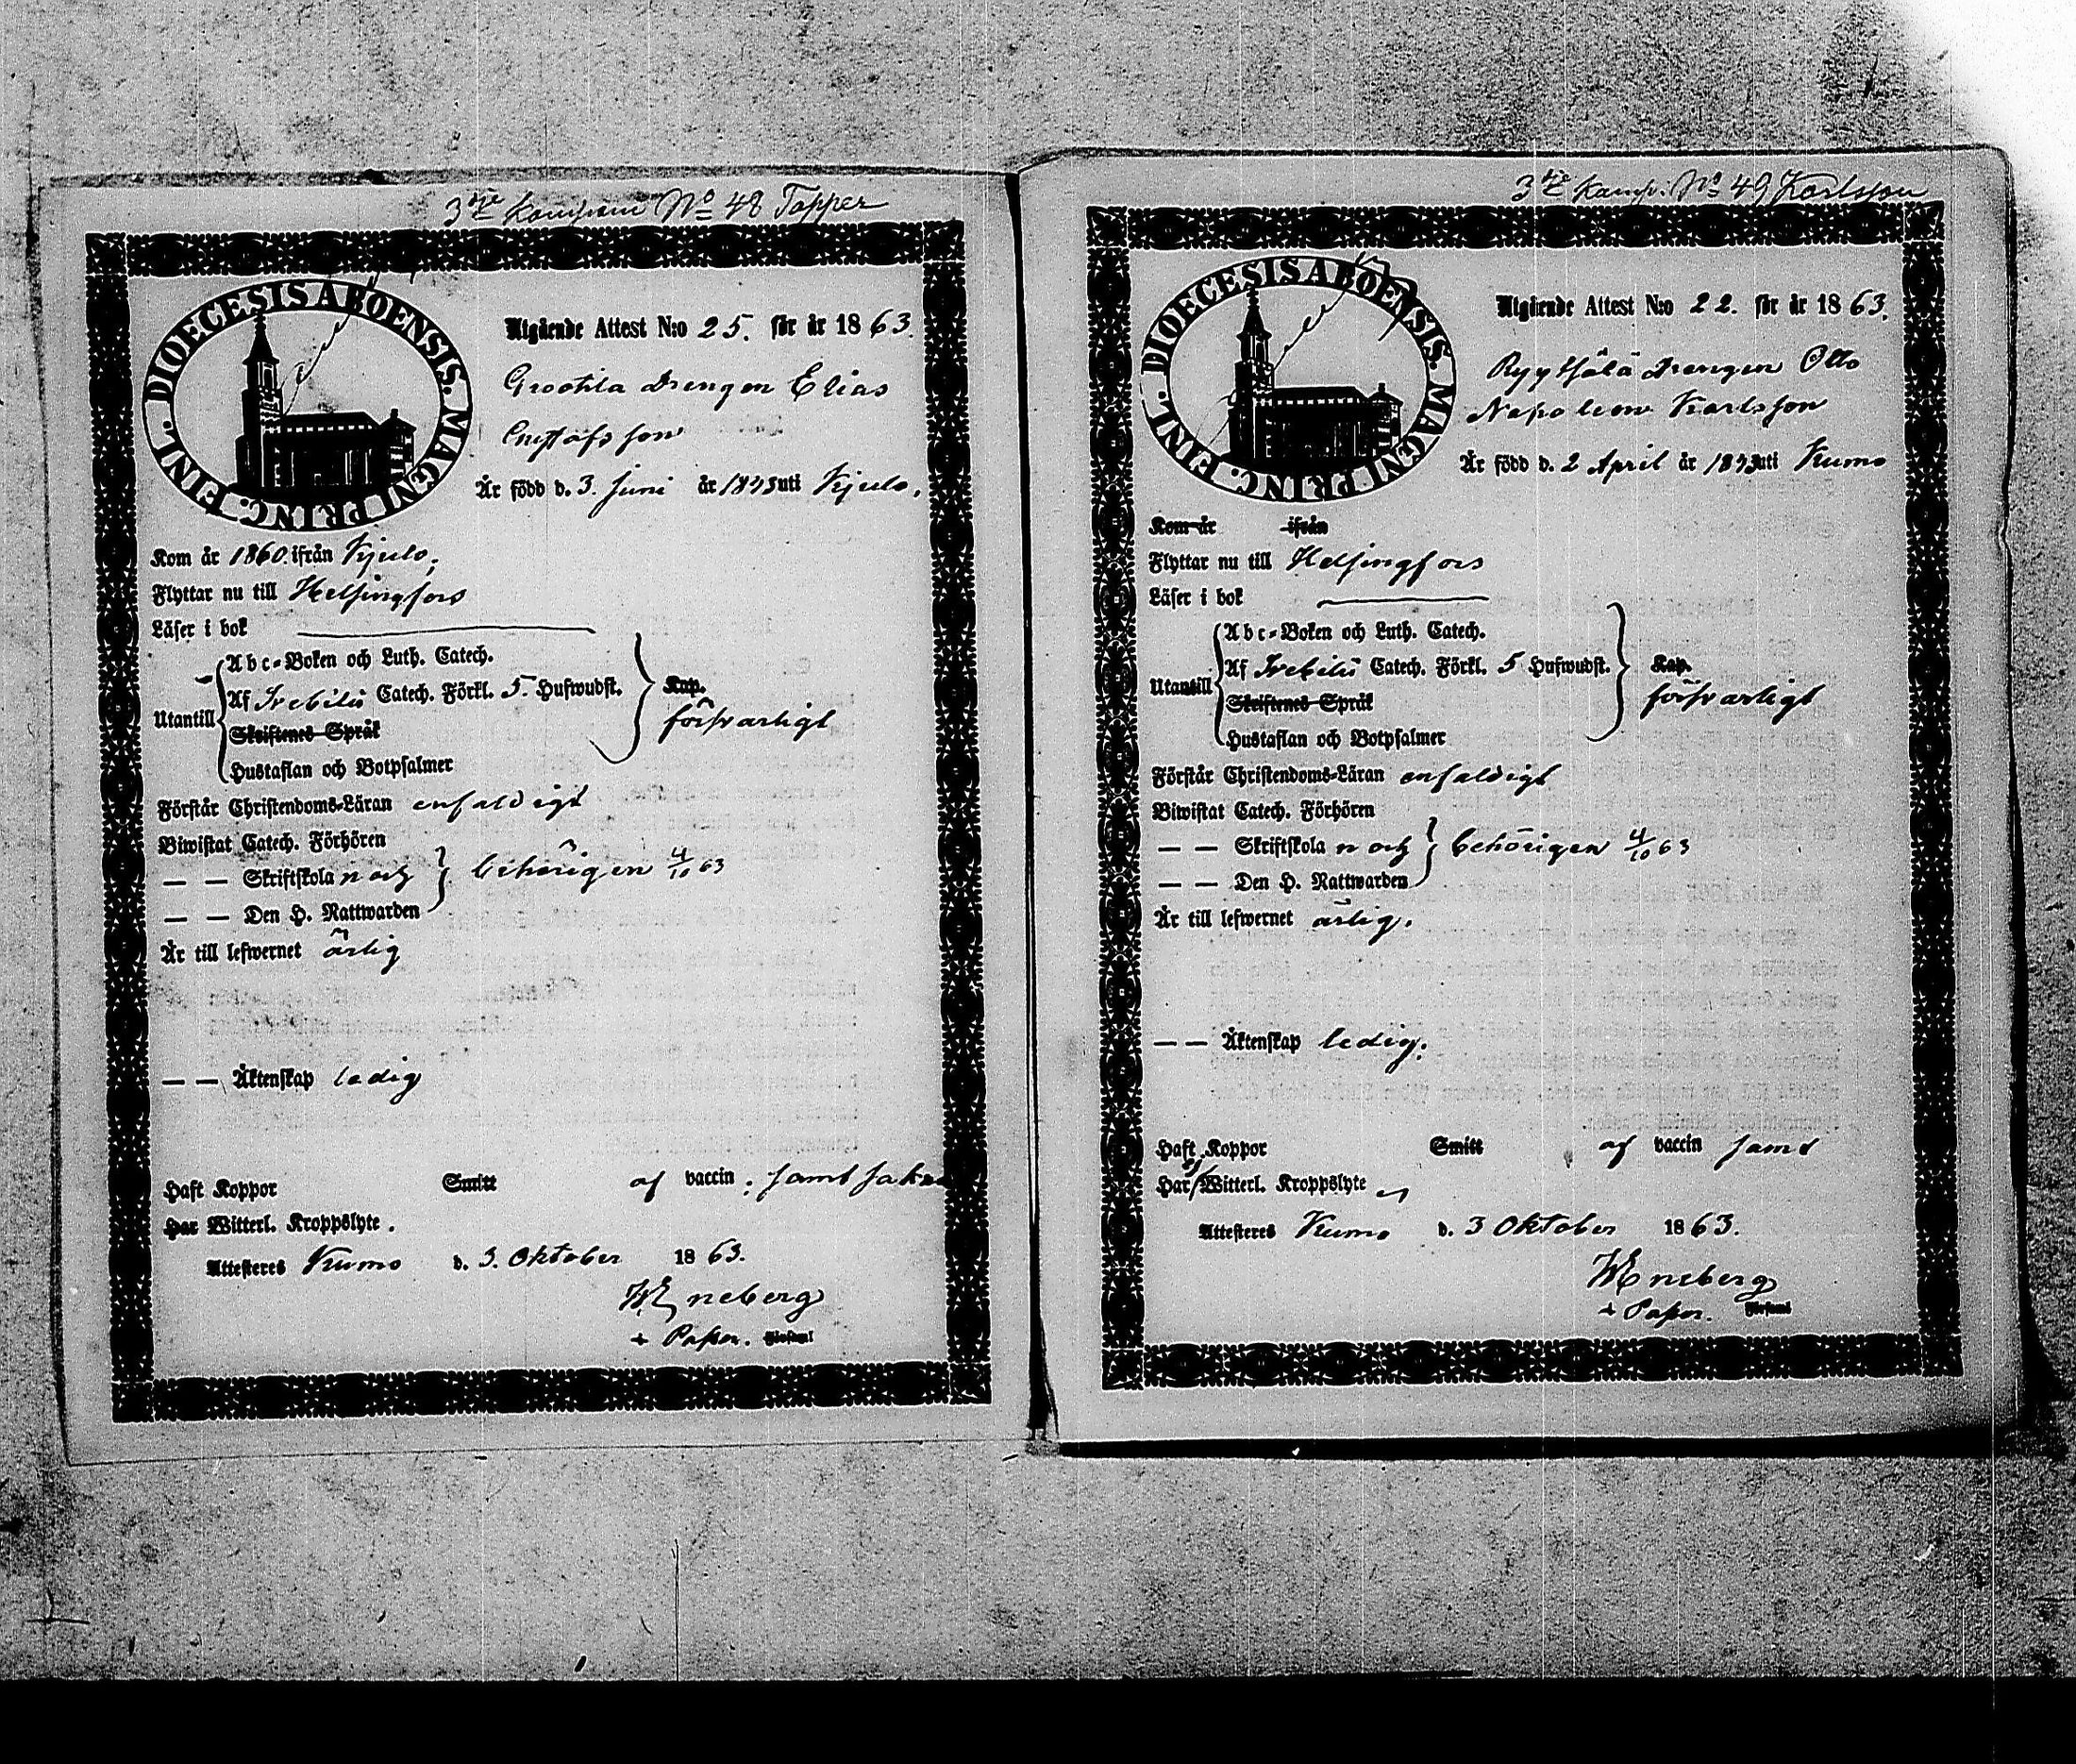 3dje Kompani No 48 Tapper
FINL. DIOECESIS ABOENSIS. MAGNI PRINC.
Utgående Attest N:o 25. för år 1863.
Grootila Drengen Elias
Gustafsson
Är född d. 3. Juni år 1843 uti Kjulo,
Kom år 1860. ifrån Kjulo;
Flyttar nu till Helsingfors
Läser i bok
Abc-Boken och Luth. Catech.
Af Svebilii Catech. Förkl. 5. Hufwudst. Kap.
Utantill försvarligt
Skriftenes Språk
Hustaflan och Botpsalmer
Förstår Christendoms-Läran enfaldigt
Biwistat Catech. Förhören
— — Skriftskola n och behörigen 4/10 63
— — Den H. Nattwarden
Är till lefwernet ärlig
— — Äktenskap ledig
Haft Koppor Smitt af vaccin; samt saknar
Har Witterl. Kroppslyte.
Attesteres Kumo d. 3. Oktober 1863.
Eneberg
Församl
3dje Komp: No 49 Karlsson
FINL. DIOECESIS ABOENSIS. MAGNI PRINC.
Utgående Attest N:o 22. för år 1863.
Ryytsälä Drengen Otto
Napoleon Karlsson
Är född d. 2 April år 1843 uti Kumo
Kom år ifrån
Flyttar nu till Helsingfors
Läser i bok
Abc-Boken och Luth. Catech.
Af Svebilii Catech. Förkl. 5 Hufwudst. Kap.
Utantill försvarligt
Skriftenes Språk
Hustaflan och Botpsalmer
Förstår Christendoms-Läran enfaldigt
Biwistat Catech. Förhören
— — Skriftskola n och behörigen 4/10 63
— — Den H. Nattwarden
Är till lefwernet ärlig.
— — Äktenskap ledig;
Haft Koppor Smitt af vaccin samt
Har ej Witterl. Kroppslyte
Attesteres Kumo d. 3 Oktober 1863.
Eneberg
Förs aml